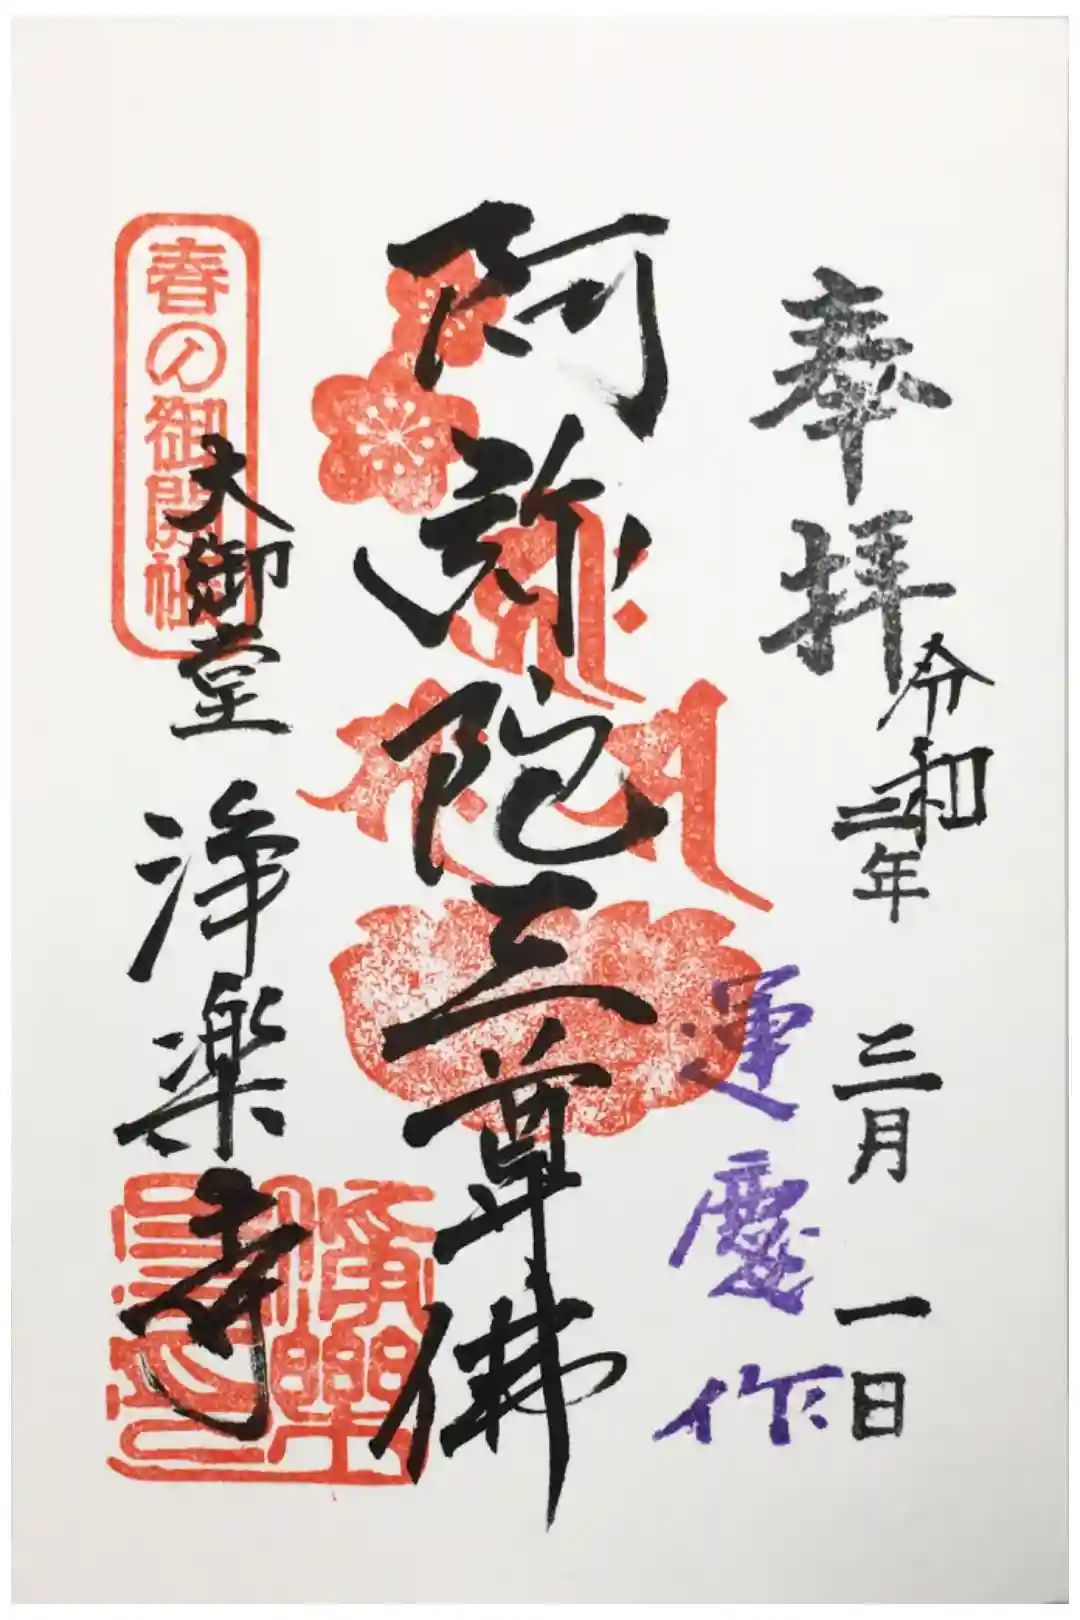 奉拝
令和三年 三月 一日
運慶作
阿弥陀三尊佛
春の御開帳
大御堂 浄楽寺